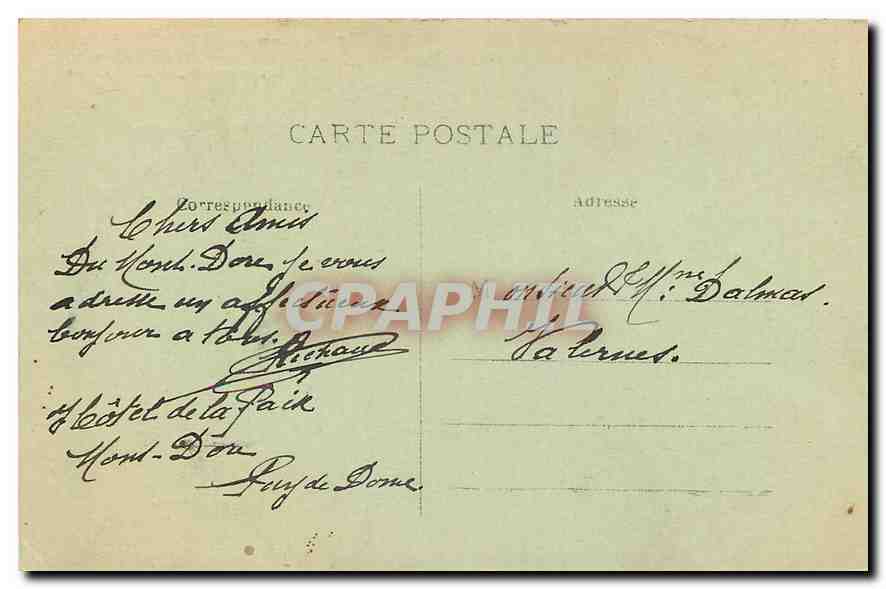 CARTE POSTALE
Correspondance
Chers Amis
Du Mont-Dore je vous
adresse un affectueux
bonjour a tous.
Hôtel de la Paix
Mont-Dore
Puy de Dome
Adresse
Monsieur & Mme Dalmas.
Valernes.
CPAPHIL